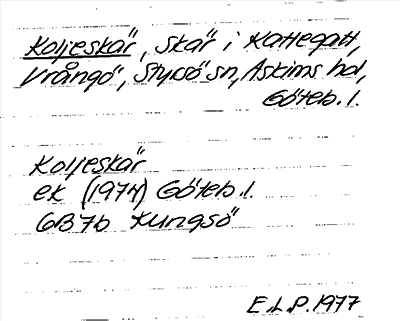 Koljeskär, skär i Kattegatt,
Vrångö, Styrsö sn, Askims hd,
Göteb. l.
Koljeskär
ek (1974) Göteb. l.
6B7b Kungsö
E.L.P. 1977